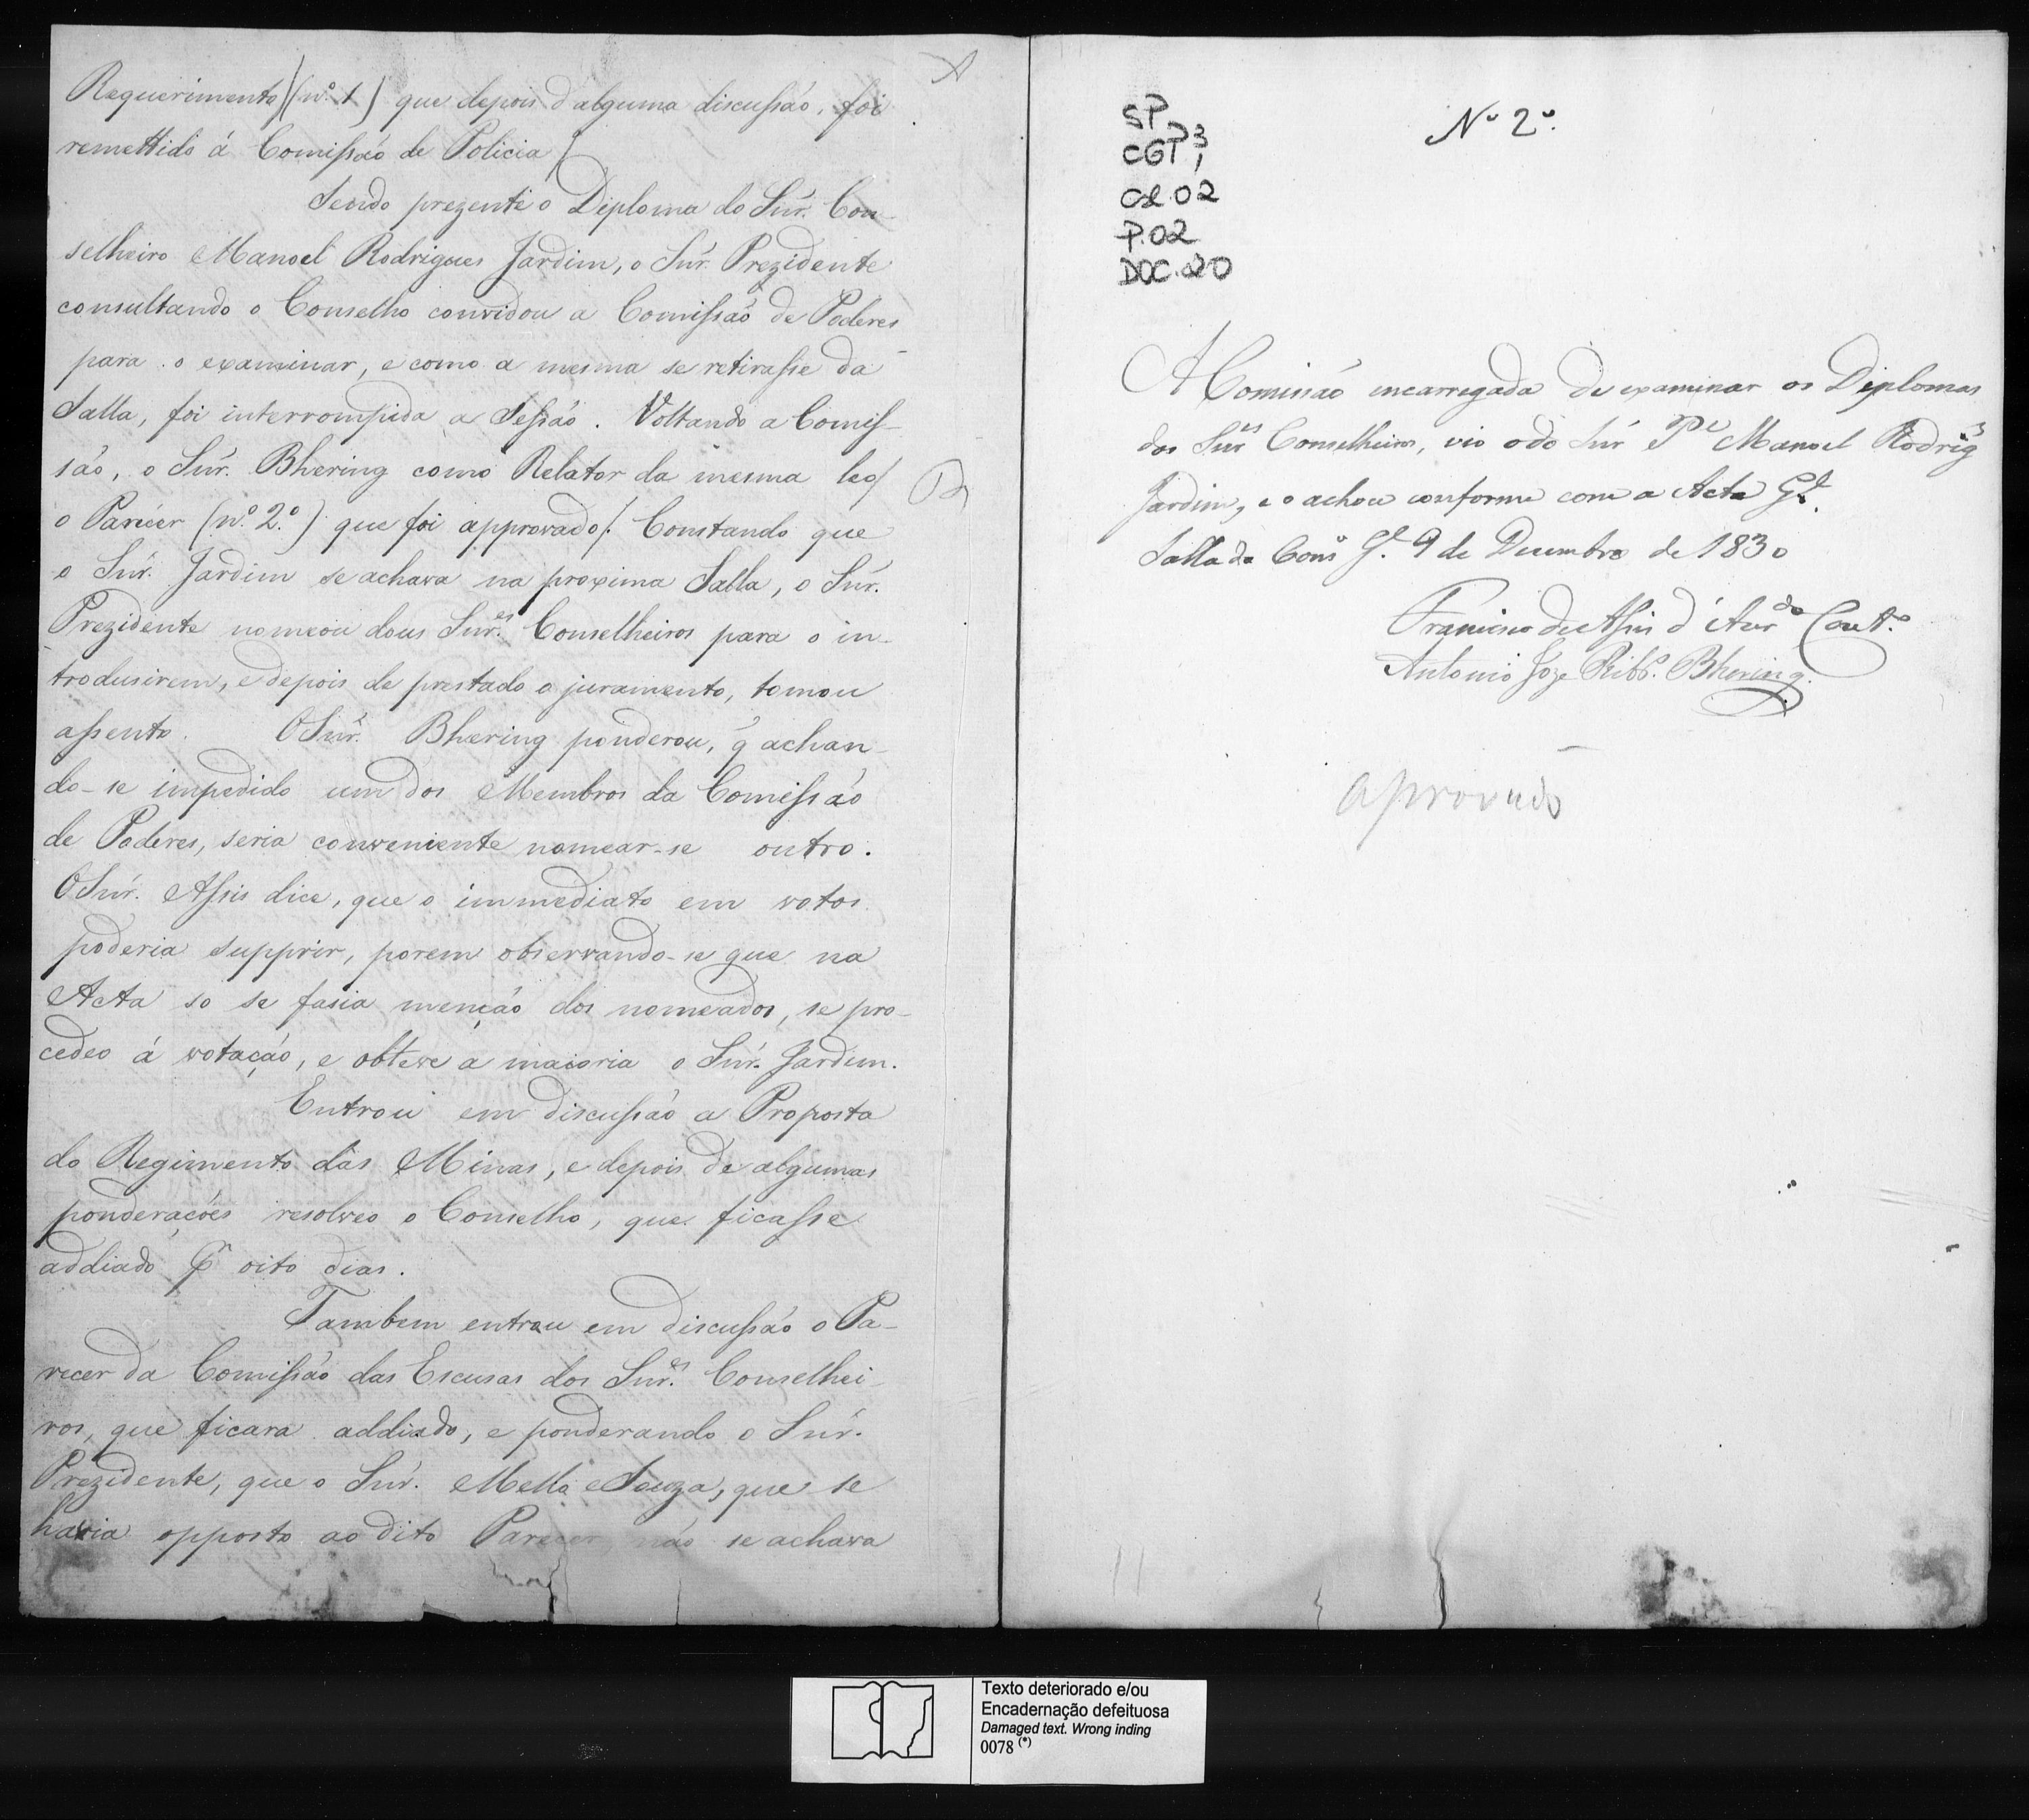 Requerimento (nº 1) que depois d'alguma discussão, foi
remettido á Comissão de Policia
Sendo prezente o Diploma do Snr. Con-
selheiro Manoel Rodrigues Jardim, o Snr. Prezidente
consultando o Conselho convidou a Comissão de Poderes
para o examinar, e como a mesma se retirasse da
Salla, foi interrompida a Sessão. Voltando a Comis-
são, o Snr. Bhering como Relator da mesma leo
o Parecer (nº 2º) que foi approvado. Constando que
o Snr. Jardim se achava na proxima Salla, o Snr.
Prezidente nomeou dous Snr.es Conselheiros para o in-
trodusirem, e depois de prestado o juramento, tomou
assento. O Snr. Bhering ponderou, q̃ achan-
do-se impedido um dos Membros da Comissão
de Poderes, seria conveniente nomear-se outro.
O Snr. Assis dice, que o immediato em votos
poderia supprir, porem observando-se que na
Acta so se fasia menção dos nomeados, se pro-
cedeo á votação, e obteve a maioria o Snr. Jardim.
Entrou em discussão a Proposta
do Regimento das Minas, e depois de algumas
ponderações resolveo o Conselho, que ficasse
addiado pr oito dias.
Tambem entrou em discussão o Pa-
recer da Comissão das Escusas dos Snr.es Conselhei-
ros, que ficara addiado, e ponderando o Snr.
Prezidente, que o Snr. Mello e Souza, que se
havia opposto ao dito Parecer não se achava
SP
CGP3,
CX.02
P.02
DOC.20
Nº 2º.
A Comissão encarregada de examinar os Diplomas
dos Snrs Conselheiros, vio o do Snr Pe Manoel Rodrigs
Jardim, e o achou conforme com a Acta Gl.
Salla do Conso Gl. 9 de Dezembro de 1830
Francisco de Assis d'Azdo Couto
Antonio Joze Ribro. Bhering.
Aprovado
Texto deteriorado e/ou
Encadernação defeituosa
Damaged text. Wrong inding
0078 (*)